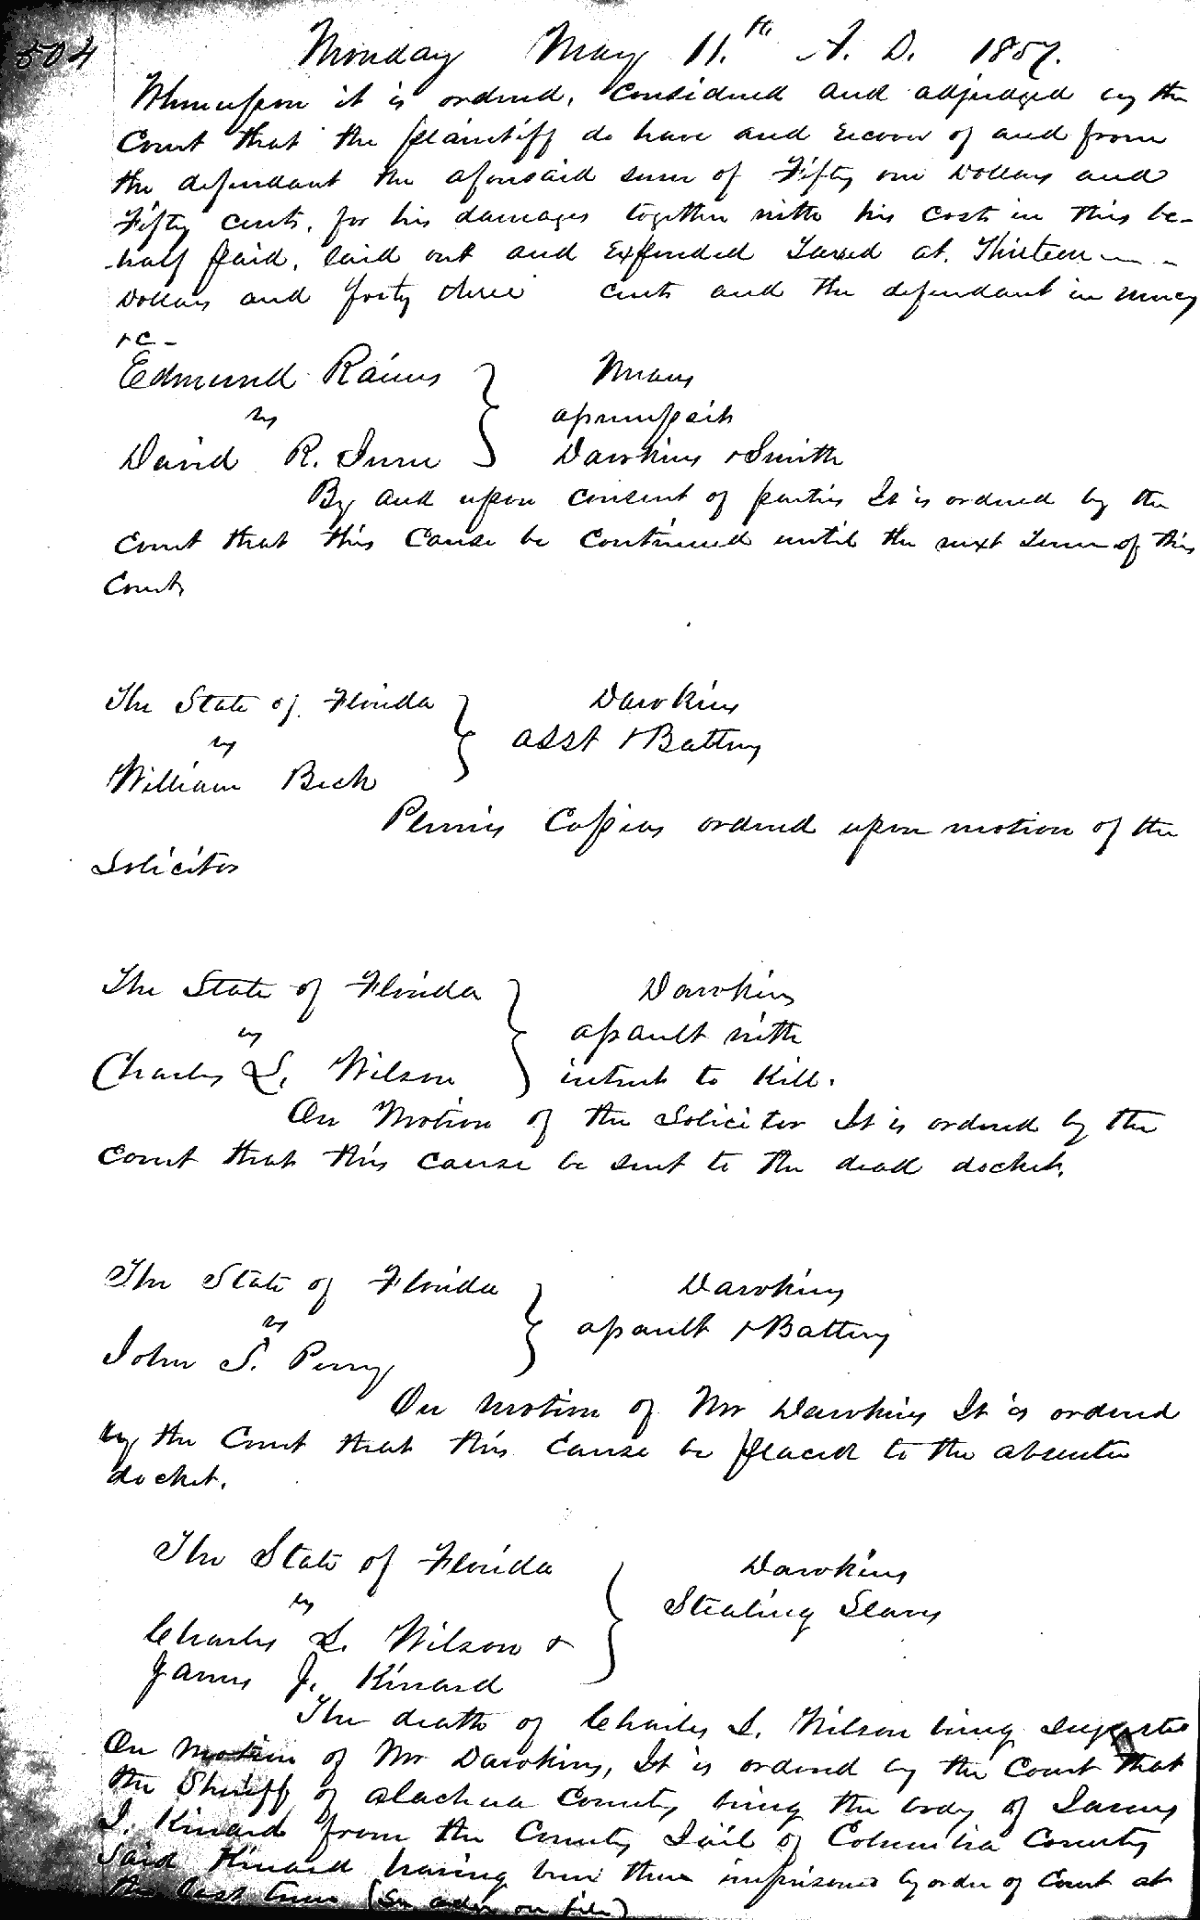 504
Monday May 11.th A. D. 1857.
Whereupon it is ordered, considered and adjudged by the
Court that the plaintiff do have and recover of and from
the defendant the aforesaid sum of Fifty one Dollars and
Fifty cents, for his damages together with his costs in this be-
-half paid, laid out and expended Taxed at. Thirteen
Dollars and forty three cents and the defendant in mercy
&c -
Edmund Raines
vs
David R.
Means
assumpsit
Dawkins & Smith
By and upon consent of parties It is ordered by the
Court that this Cause be continued until the next Term of this
Court
The State of Florida
vs
William Beck
Dawkins
asst & Battery
Pluries Capias ordered upon motion of the
Solicitor
The State of Florida
vs
Charles L. Wilson
Dawkins
assault with
intent to Kill.
On Motion of the Solicitor It is ordered by the
Court that this cause be sent to the dead docket.
The State of Florida
vs
John S. Perry
Dawkins
assault & Battery
On motion of Mr Dawkins It is ordered
by the Court that this Cause be placed to the absentee
docket.
The State of Florida
vs
Charles L. Wilson &
James J. Kinard
Dawkins
Stealing Slaves
The death of Charles L. Wilson being suggested
On motion of Mr Dawkins, It is ordered by the Court that
the Sheriff of Alachua County bring the body of James
J. Kinard from the County Jail of Columbia County
Said Kinard having been there imprisoned by order of Court at
the last term (See order on file)